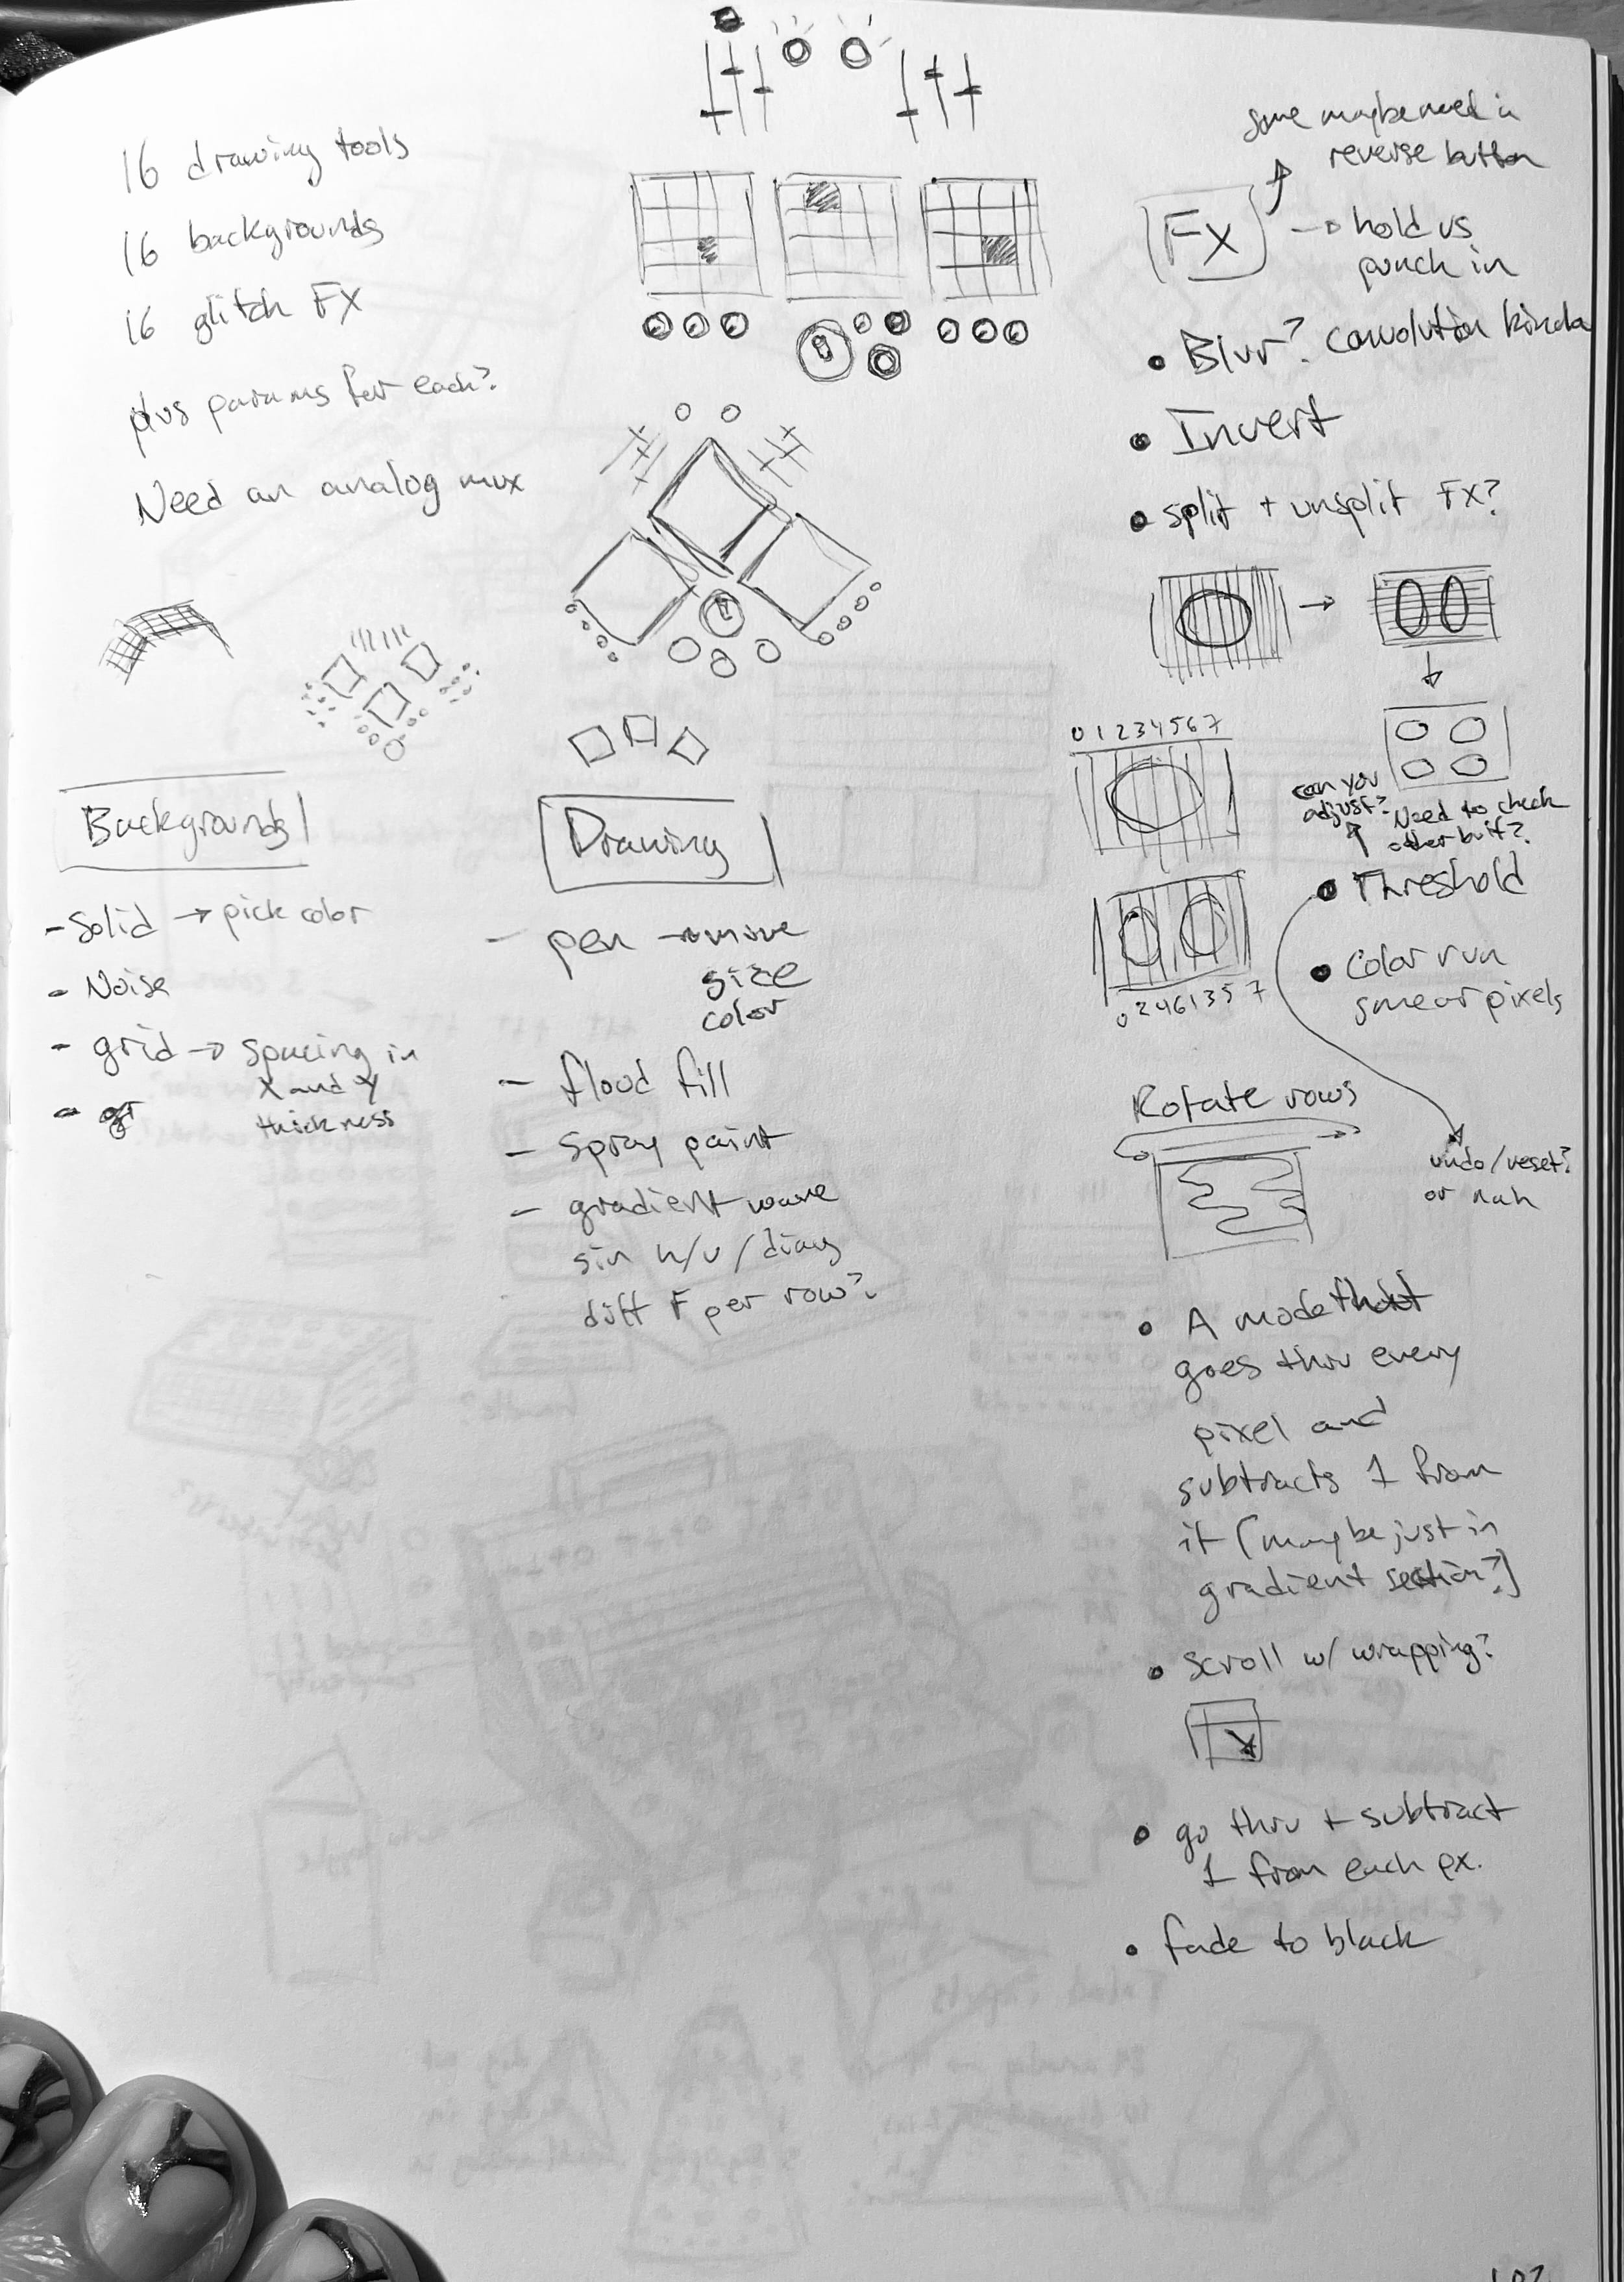 16 drawing tools
16 backgrounds
16 glitch FX
plus params for each?
Need an analog mux
Backgrounds
- Solid → pick color
- Noise
- grid → spacing in
x and y
thickness
- gr
Drawing
- pen → move
size
color
- flood fill
- spray paint
- gradient wave
sin h/v/diag
diff F per row?
some maybe need a
reverse button
FX
→ hold vs
punch in
• Blur? convolution kinda
• Invert
• split + unsplit FX?
0 1 2 3 4 5 6 7
0 2 4 6 1 3 5 7
can you
adjust?
Need to check
other buf?
• Threshold
• Color run
smear pixels
Rotate rows
undo/reset?
or nah
• A mode that
goes thru every
pixel and
subtracts 1 from
it (maybe just in
gradient section?)
• scroll w/ wrapping?
• go thru + subtract
1 from each px.
• fade to black